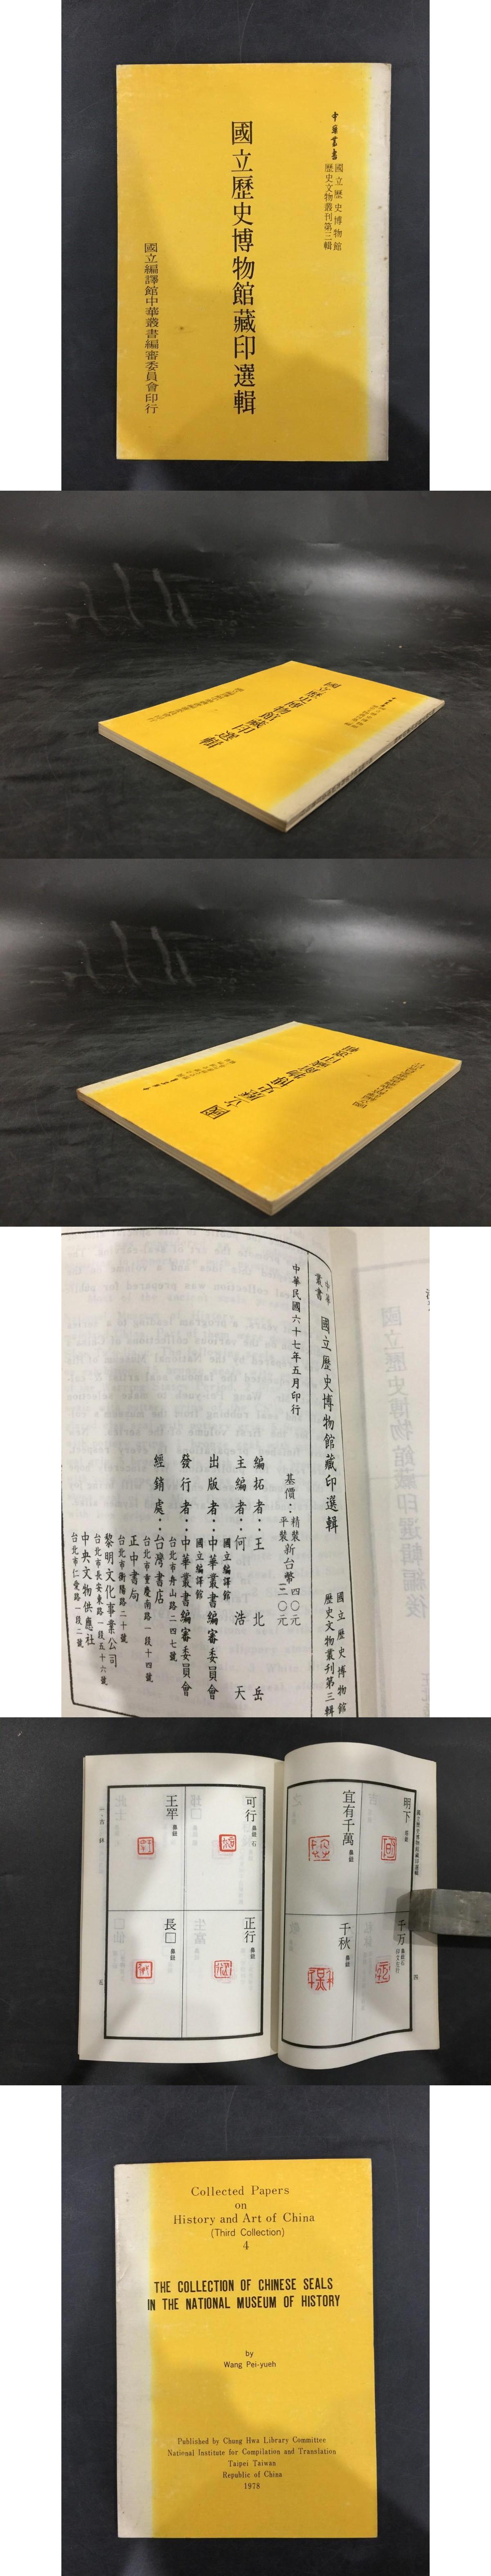 中華叢書
國立歷史博物館
歷史文物叢刊第三輯
國立歷史博物館藏印選輯
國立編譯館中華叢書編審委員會印行
中華
叢書
國立歷史博物館藏印選輯
國立歷史博物館
歷史文物叢刊第三輯
中華民國六十七年五月印行
基價：精裝新台幣四〇元
平裝新台幣三〇元
編拓者：王北岳
主編者：何浩天
國立編譯館
出版者：中華叢書編審委員會
國立編譯館
發行者：中華叢書編審委員會
台北市舟山路二四七號
經銷處：台灣書店
台北市重慶南路一段十四號
正中書局
台北市衡陽路二十號
黎明文化事業公司
台北市長安東路一段五十六號
中央文物供應社
台北市仁愛路一段二號
國立歷史博物館藏印選輯
四
明下
千万
宜有千萬 鼻鈕
千秋 鼻鈕
可行 鼻鈕 石
正行 鼻鈕
王䍐 鼻鈕
長□ 鼻鈕
五
Collected Papers
on
History and Art of China
(Third Collection)
4
THE COLLECTION OF CHINESE SEALS
IN THE NATIONAL MUSEUM OF HISTORY
by
Wang Pei-yueh
Published by Chung Hwa Library Committee
National Institute for Compilation and Translation
Taipei Taiwan
Republic of China
1978